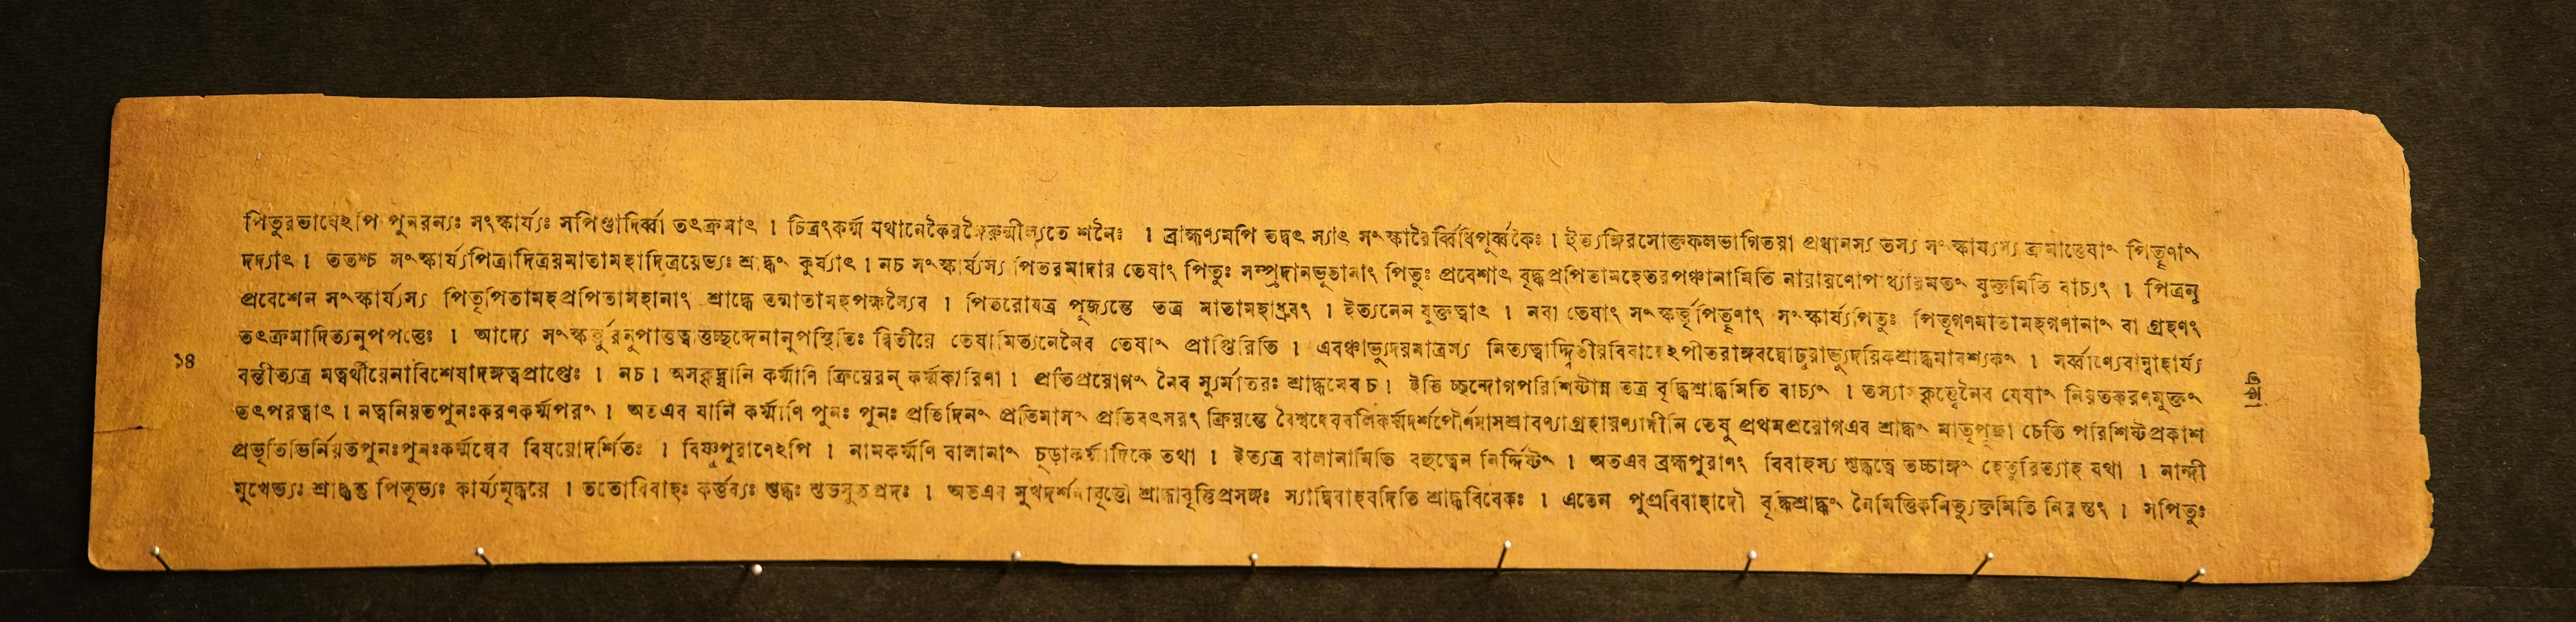 পিতুরভাবেঽপি পুনরন্যঃ সংস্কার্য্যঃ সপিণ্ডাদির্ব্বা তৎক্রমাৎ । চিত্রংকর্ম্ম যথানেকৈরঙ্গৈরুন্মীল্যতে শনৈঃ । ব্রাহ্মণ্যমপি তদ্বৎ স্যাৎ সংস্কারৈর্ব্বিধিপূর্ব্বকৈঃ । ইত্যঙ্গিরসোক্তফলভাগিতয়া প্রধানস্য তস্য সংস্কার্য্যস্য ক্রমাত্তেষাং পিতৄণাং
দদ্যাৎ । ততশ্চ সংস্কার্য্যপিত্রাদিত্রয়মাতামহাদিত্রয়েভ্যঃ শ্রাদ্ধং কুর্য্যাৎ । নচ সংস্কার্য্যস্য পিতরমাদায় তেষাং পিতুঃ সম্প্রদানভূতানাং পিতুঃ প্রবেশাৎ বৃদ্ধপ্রপিতামহেতরপঞ্চানামিতি নারায়ণোপাধ্যায়মতং যুক্তমিতি বাচ্যং । পিত্রনু
প্রবেশেন সংস্কার্য্যস্য পিতৃপিতামহপ্রপিতামহানাং শ্রাদ্ধে তন্মাতামহপক্ষস্যৈব । পিতরোযত্র পূজ্যন্তে তত্র মাতামহাধ্রুবং । ইত্যনেন যুক্তত্বাৎ । নবা তেষাং সংস্কর্ত্তৃপিতৄণাং সংস্কার্য্যপিতুঃ পিতৃগণমাতামহগণানাং বা গ্রহণং
তৎক্রমাদিত্যনুপপত্তেঃ । আদ্যে সংস্কর্ত্তুরনুপাত্তত্বাত্তচ্ছব্দেনানুপস্থিতিঃ দ্বিতীয়ে তেষামিত্যনেনৈব তেষাং প্রাপ্তিরিতি । এবঞ্চাভ্যুদয়মাত্রস্য নিত্যত্বাদ্দ্বিতীয়বিবাহেঽপীতরাঙ্গবদ্বোঢ়ুরাভ্যুদয়িকশ্রাদ্ধমাবশ্যকং । সর্ব্বাণ্যেবান্বাহার্য্য
১৪
বন্তীত্যত্র মত্বর্থীয়েনাবিশেষাদঙ্গত্বপ্রাপ্তেঃ । নচ । অসকৃদ্যানি কর্ম্মাণি ক্রিয়েরন্ কর্ম্মকারিণা । প্রতিপ্রয়োগং নৈব স্যুর্মাতরঃ শ্রাদ্ধমেব চ । ইতি চ্ছন্দোগপরিশিষ্টান্ন তত্র বৃদ্ধিশ্রাদ্ধমিতি বাচ্যং । তস্যাসকৃত্ত্বেনৈব যেষাং নিয়তকরণমুক্তং
তৎপরত্বাৎ । নত্বনিয়তপুনঃকরণকর্ম্মপরং । অতএব যানি কর্ম্মাণি পুনঃ পুনঃ প্রতিদিনং প্রতিমাসং প্রতিবৎসরং ক্রিয়ন্তে বৈশ্বদেববলিকর্ম্মদর্শপৌর্ণমাসশ্রাবণ্যাগ্রহায়ণ্যাদীনি তেষু প্রথমপ্রয়োগএব শ্রাদ্ধং মাতৃপূজা চেতি পরিশিষ্টপ্রকাশ
প্রভৃতিভির্নিয়তপুনঃপুনঃকর্ম্মস্বেব বিষয়োদর্শিতঃ । বিষ্ণুপুরাণেঽপি । নামকর্ম্মণি বালানাং চূড়াকর্ম্মাদিকে তথা । ইত্যত্র বালানামিতি বহুত্বেন নির্দ্দিষ্টং । অতএব ব্রহ্মপুরাণং বিবাহস্য শুদ্ধত্বে তচ্চাঙ্গং হেতুরিত্যাহ যথা । নান্দী
মুখেভ্যঃ শ্রাদ্ধন্তু পিতৃভ্যঃ কার্য্যমৃদ্ধয়ে । ততোবিবাহঃ কর্ত্তব্যঃ শুদ্ধঃ শুভসুতপ্রদঃ । অতএব মুখদর্শনাবৃত্তৌ শ্রাদ্ধাবৃত্তিপ্রসঙ্গঃ স্যাদ্বিবাহবদিতি শ্রাদ্ধবিবেকঃ । এতেন পুত্রবিবাহাদৌ বৃদ্ধিশ্রাদ্ধং নৈমিত্তিকনিত্যুক্তমিতি নিরস্তং । সপিতুঃ